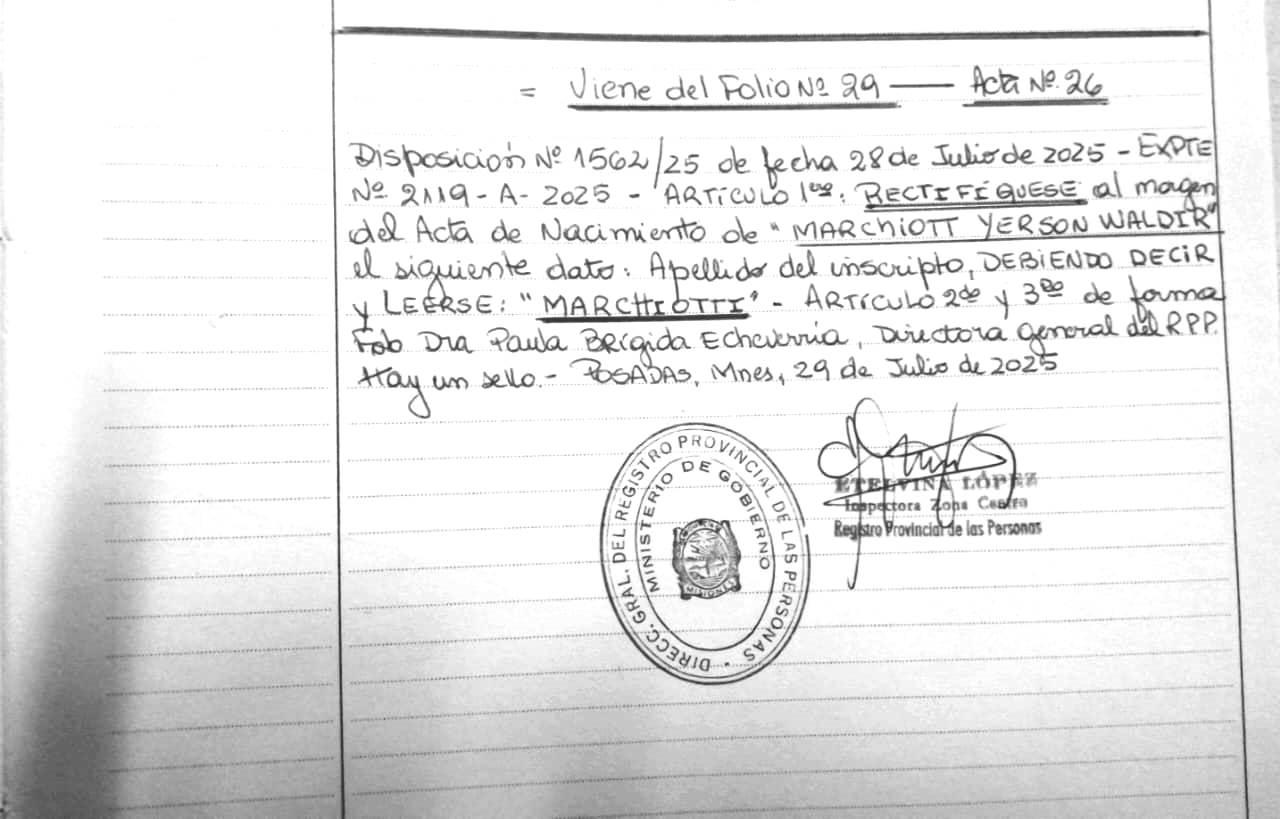 = Viene del Folio Nº 29 —— Acta Nº. 26
Disposición Nº 1562/25 de fecha 28 de Julio de 2025 - EXPTE
Nº 2119 - A - 2025 - ARTÍCULO 1ero: RECTIFÍQUESE al margen
del Acta de Nacimiento de "MARCHIOTT YERSON WALDIR"
el siguiente dato: Apellido del inscripto, DEBIENDO DECIR
y LEERSE: "MARCHIOTTI" - ARTÍCULO 2do y 3ero de forma
Fdo Dra Paula Brígida Echeverría, Directora General del RPP.
Hay un sello.- POSADAS, Mnes, 29 de Julio de 2025
DIRECC. GRAL. DEL REGISTRO PROVINCIAL DE LAS PERSONAS
MINISTERIO DE GOBIERNO
MISIONES
ETELVINA LÓPEZ
Inspectora Zona Centro
Registro Provincial de las Personas